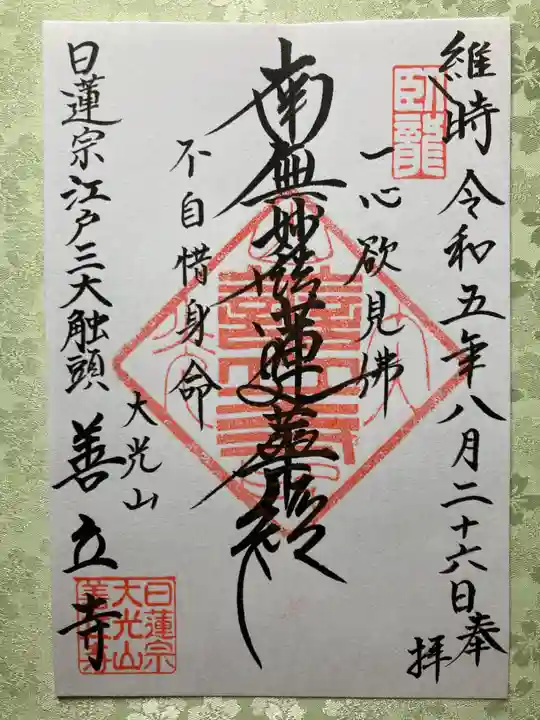 維時 令和五年八月二十六日
奉拝
臥龍
一心欲見佛
南無妙法蓮華経
不自惜身命
日蓮宗江戸三大触頭
大光山
善立寺
日蓮宗
大光山
善立寺